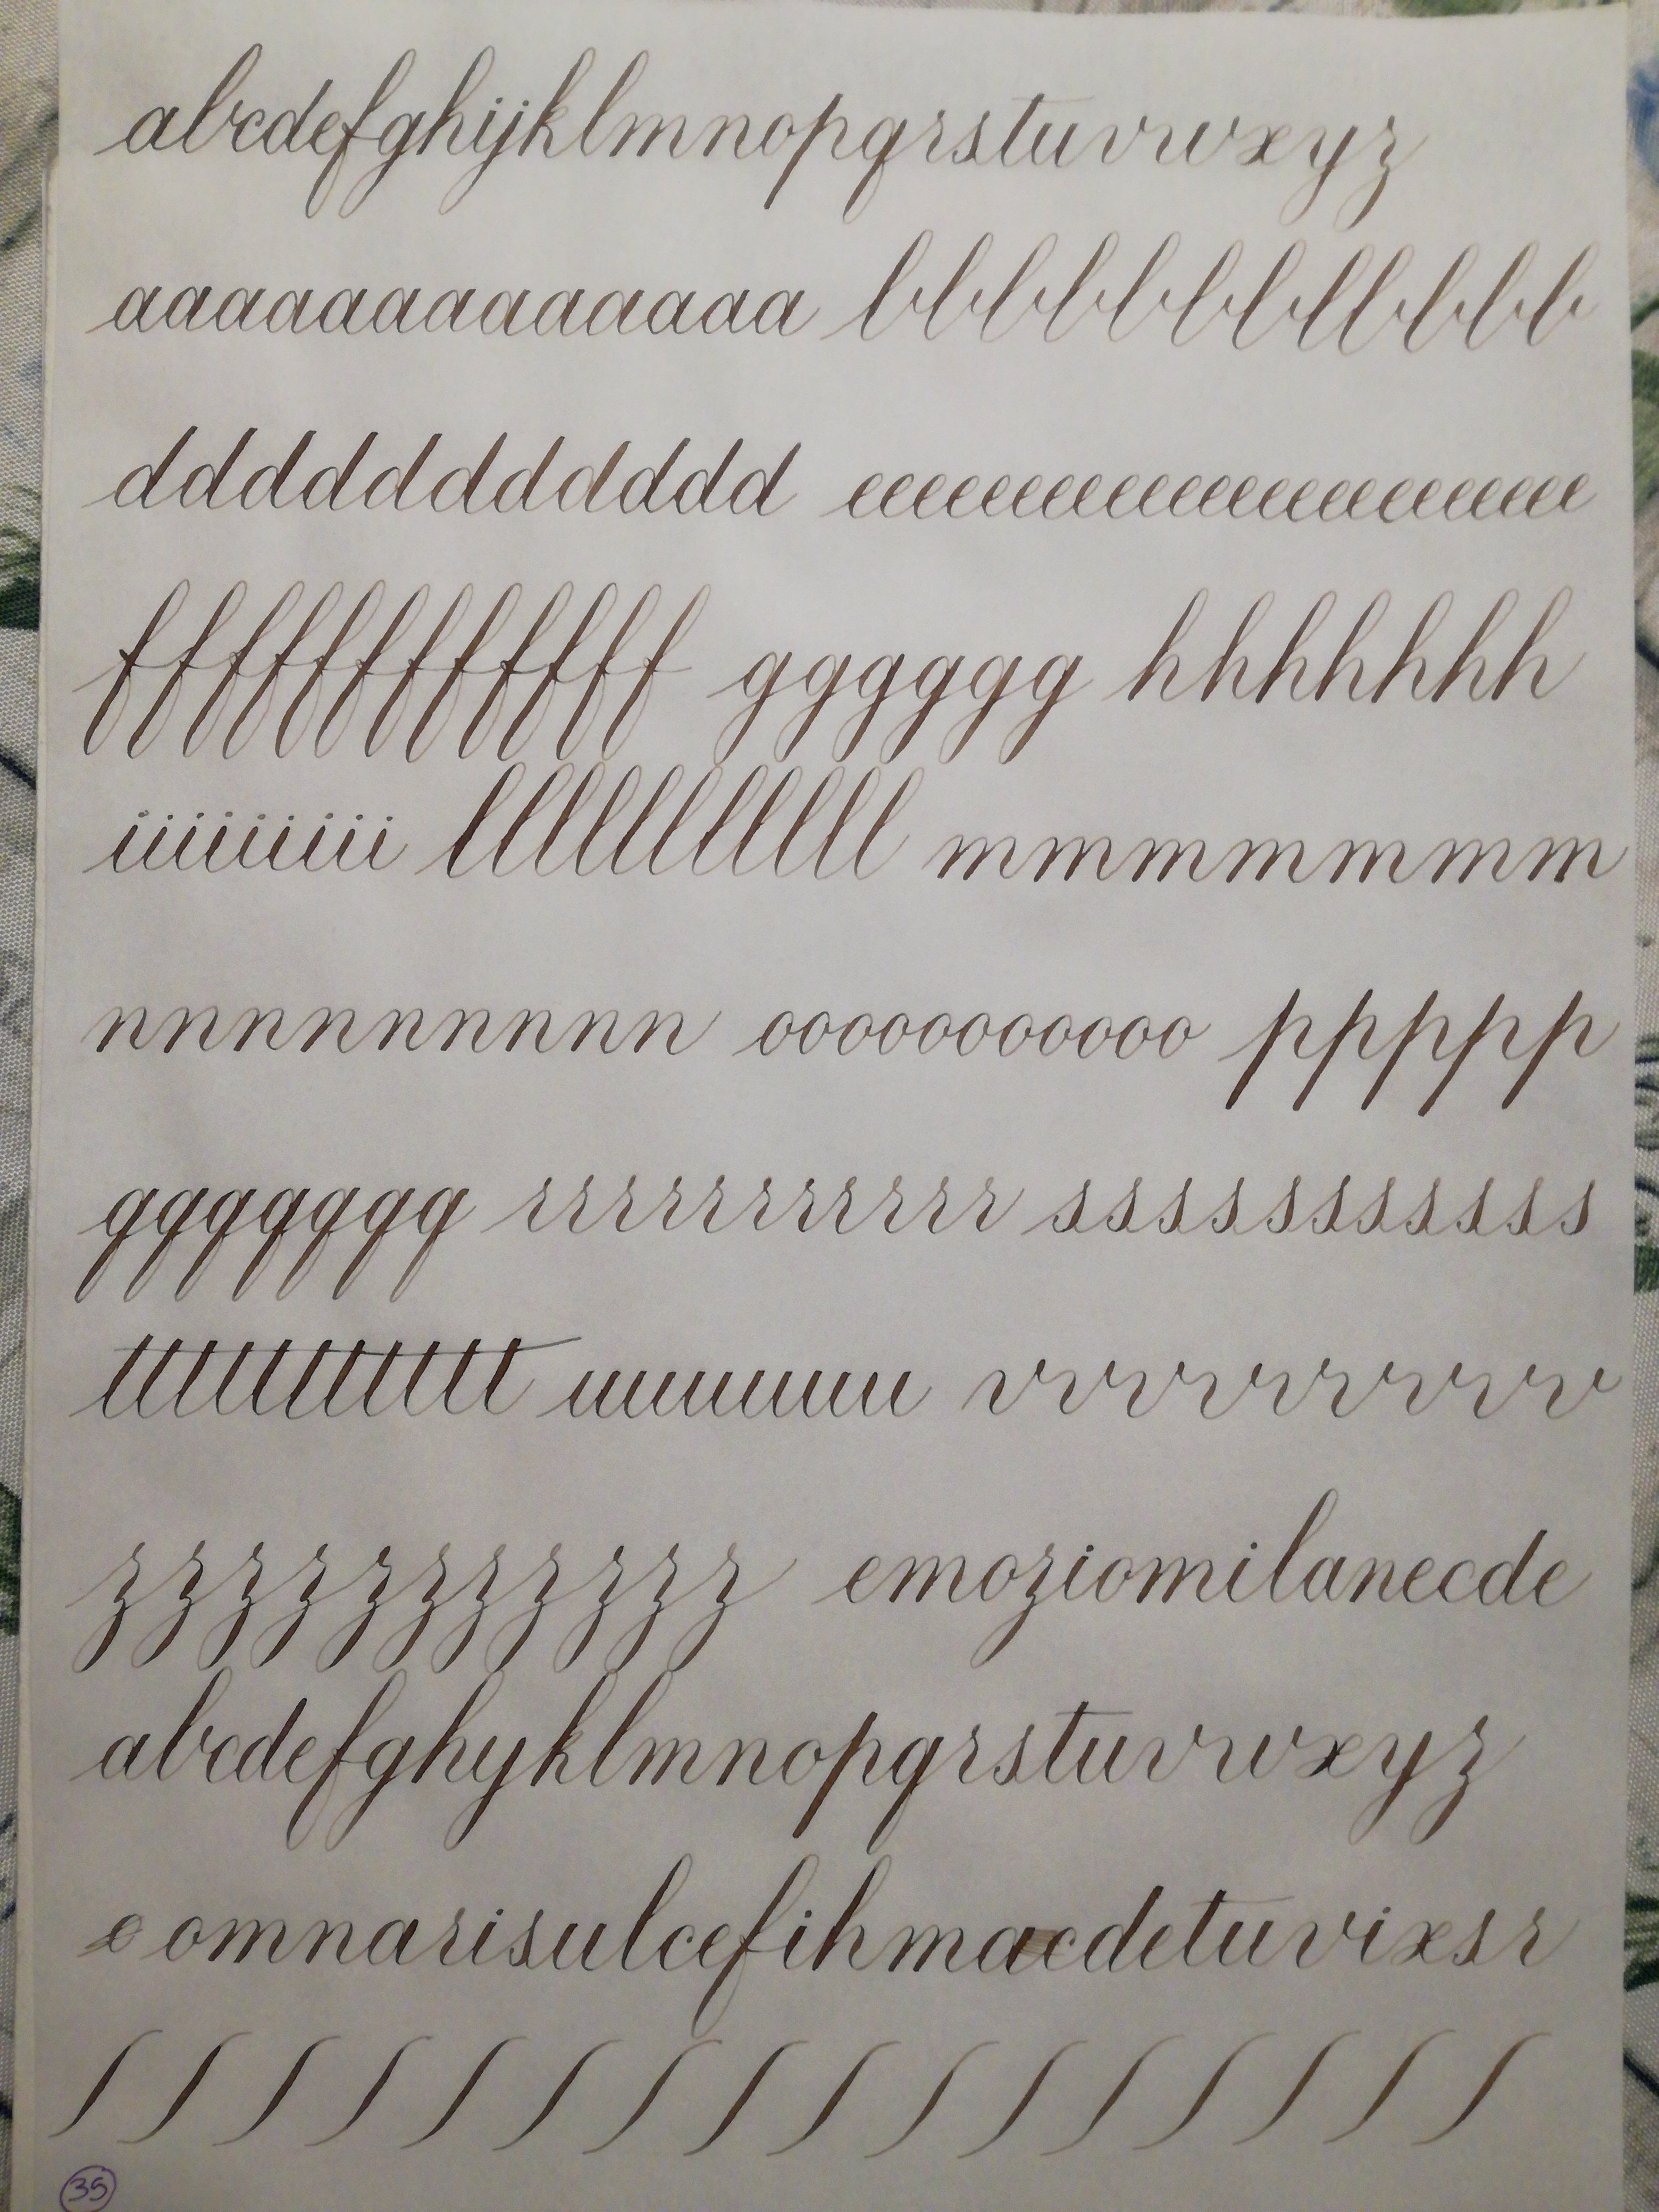 abcdefghijklmnopqrstuvwxyz
aaaaaaaaaaaaaa bbbbbbbbbbbbb
dddddddddddd eeeeeeeeeeeeeeeeeeeeeee
ffffffffffff gggggg hhhhhhh
iiiiiiiii lllllllllll mmmmmmm
nnnnnnnnnn oooooooooooo ppppp
qqqqqqq rrrrrrrrrrr ssssssssssss
ttttttttttt uuuuuuu vvvvvvvvv
zzzzzzzzzzz emoziomilanecde
abcdefghyklmnopqrstuvwxyz
e omnarisulcefihmacdetuvixsr
35